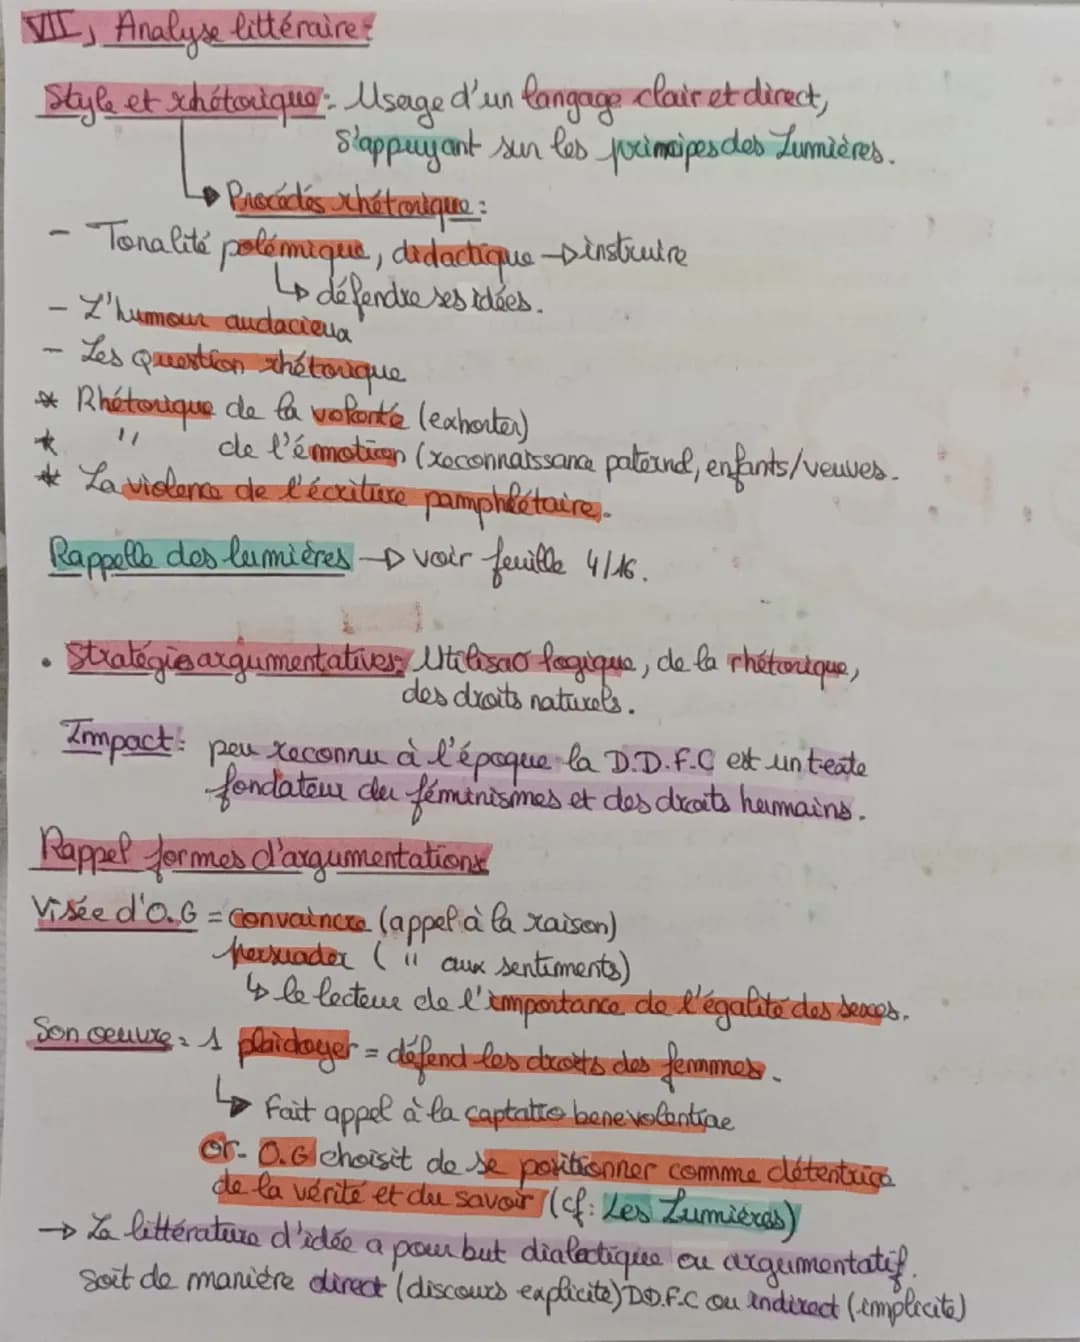 VII, Analyse littéraire:
Style et rhétorique: Usage d'un langage clair et direct,
s'appuyant sur les principes des Lumières.
Procédés rhétorique:
- Tonalité polémique, didactique → instruire
↳ défendre ses idées.
- L'humour audacieux
- Les question rhétorique
* Rhétorique de la volonté (exhorter)
* " de l'émotion (reconnaissance paternel, enfants/veuves.
* La violence de l'écriture pamphlétaire.
Rappelle des lumières → voir feuille 4/16.
• Stratégies argumentatives: Utilisa° logique, de la rhétorique,
des droits naturels.
Impact: peu reconnu à l'époque la D.D.F.C est un texte
fondateur du féminismes et des droits humains.
Rappel formes d'argumentations
Visée d'O.G = convaincre (appel à la raison)
persuader ( " aux sentiments)
↳ le lecteur de l'importance de l'égalité des sexes.
Son oeuvre = 1 plaidoyer = défend les droits des femmes.
↳ Fait appel à la captatio benevolentiae
or- O.G choisit de se positionner comme détentrice
de la vérité et du savoir (cf: Les Lumières)
→ La littérature d'idée a pour but dialectique ou argumentatif.
soit de manière direct (discours explicite) D.D.F.C ou indirect (implicite)